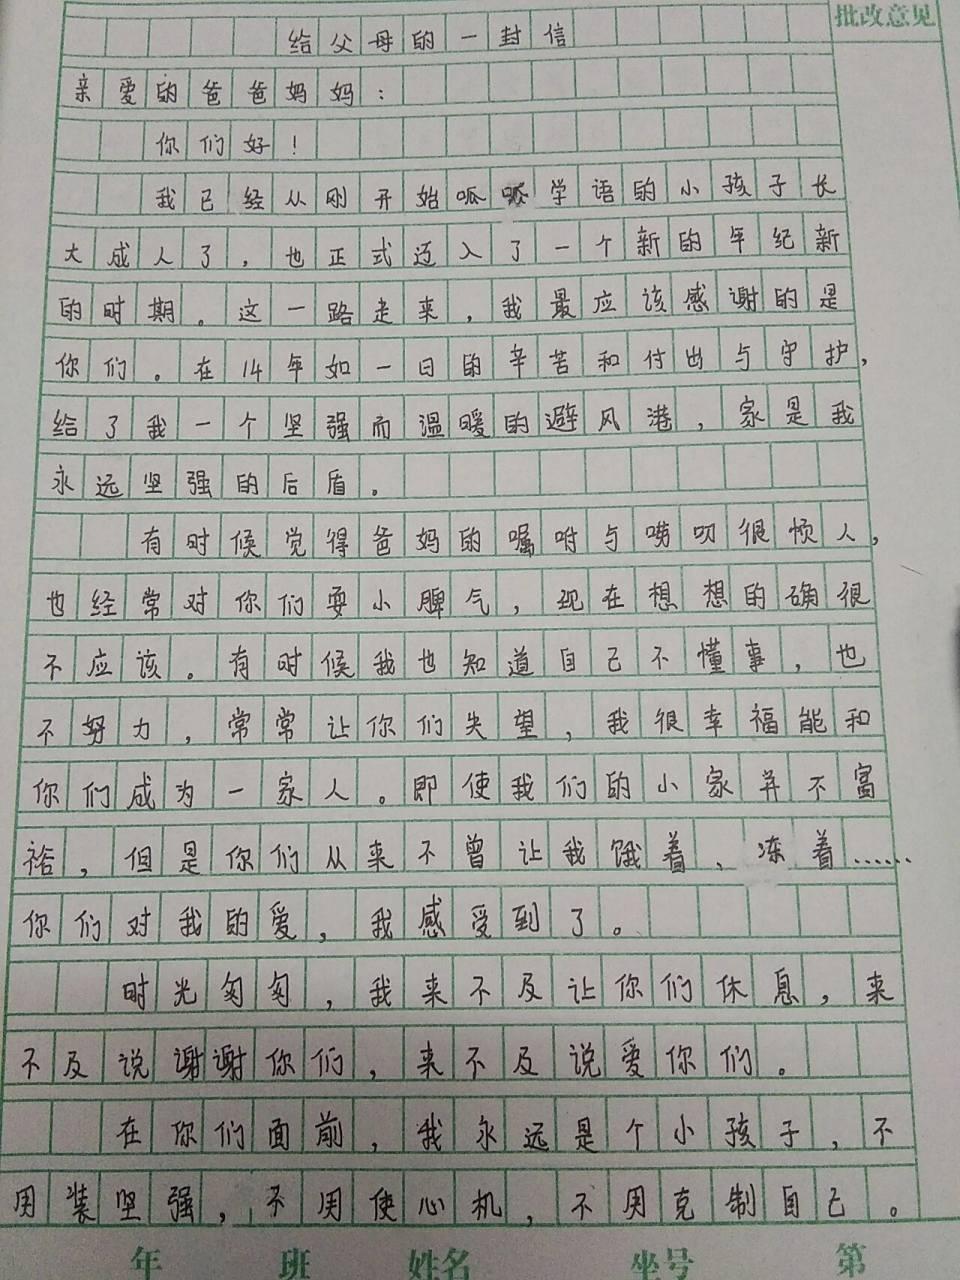 批改意见
给父母的一封信
亲爱的爸爸妈妈：
你们好！
我已经从刚开始呱呱学语的小孩子长
大成人了，也正式迈入了一个新的年纪新
的时期。这一路走来，我最应该感谢的是
你们。在14年如一日的辛苦和付出与守护，
给了我一个坚强而温暖的避风港，家是我
永远坚强的后盾。
有时候觉得爸妈的嘱咐与唠叨很烦人，
也经常对你们耍小脾气，现在想想的确很
不应该。有时候我也知道自己不懂事，也
不努力，常常让你们失望，我很幸福能和
你们成为一家人。即使我们的小家并不富
裕，但是你们从来不曾让我饿着、冻着……
你们对我的爱，我感受到了。
时光匆匆，我来不及让你们休息，来
不及说谢谢你们，来不及说爱你们。
在你们面前，我永远是个小孩子，不
用装坚强，不用使心机，不用克制自己。
年 班 姓名 坐号 第